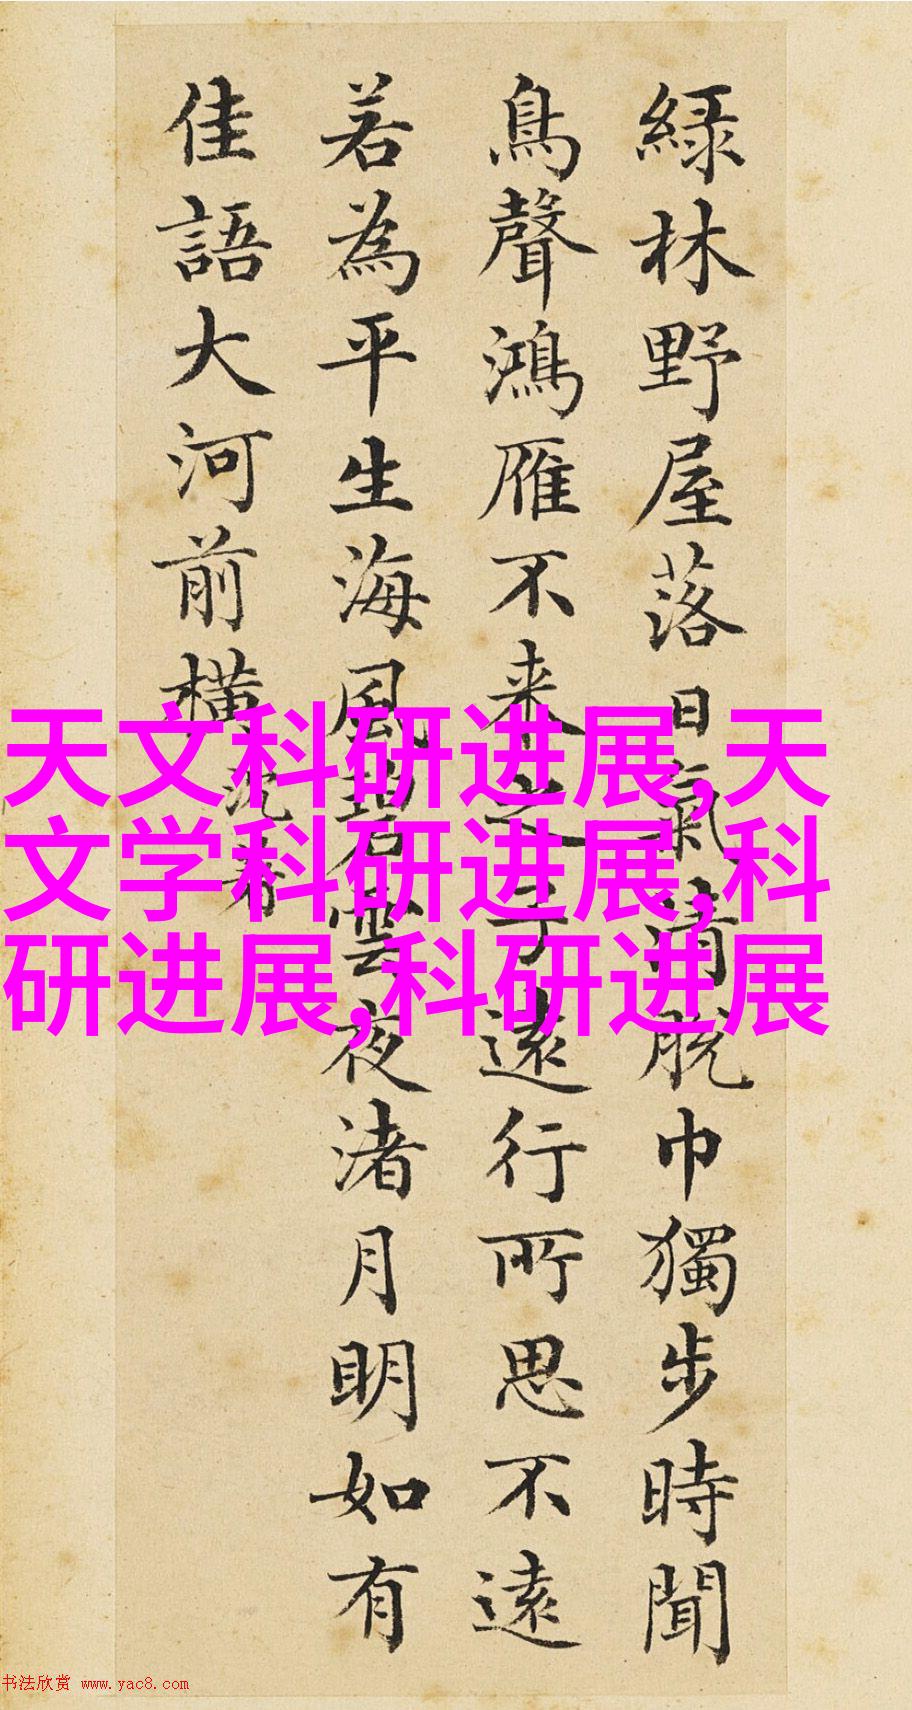 綠林野屋落日氣清脫巾獨步時聞
鳥聲鴻雁不来之子遠行所思不遠
若為平生海風碧雲夜渚月明如有
佳語大河前橫
天文科研进展,天
文学科研进展,科
研进展,科研进展
书法欣赏 www.yac8.com